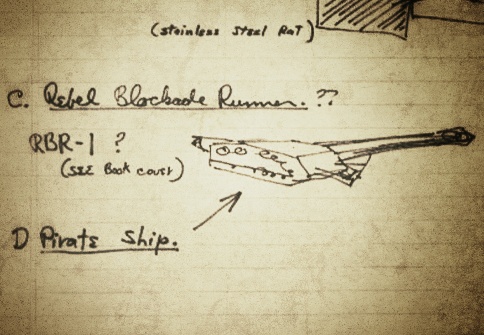 (stainless steel Rat)
C. Rebel Blockade Runner. ??
RBR-1 ?
(SEE Book cover)
D Pirate Ship.